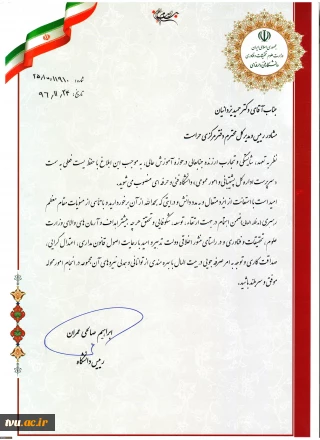 جمهوری اسلامی ایران
وزارت علوم، تحقیقات و فناوری
دانشگاه فنی و حرفه‌ای
شماره: ۲۵/۱۰۰/۱۱۹۶۰
تاریخ: ۹۶,۷,۲۳
جناب آقای دکتر حمید یزدانیان
مشاور رییس و مدیر کل محترم دفتر مرکزی حراست
نظر به تعهد، شایستگی و تجارب ارزنده جنابعالی در حوزه آموزش عالی، به موجب این ابلاغ با حفظ پست فعلی به سمت
«سرپرست اداره کل پشتیبانی و امور عمومی» دانشگاه فنی و حرفه ای منصوب می شوید.
امید است با استعانت از ایزد متعال و به مدد دانش و درایتی که بحمدالله از آن برخوردارید و با تاسی از منویات مقام معظم
رهبری مدظله العالی اهتمام در جهت ارتقاء، توسعه، شکوفایی و تحقق هرچه بیشتر اهداف و آرمان های والای وزارت
علوم، تحقیقات و فناوری و در راستای منشور اخلاقی دولت تدبیر و امید با رعایت اصول قانون مداری، اعتدال گرایی،
صداقت کاری و توجه به امر صرفه جویی در بیت المال با بهره مندی از توانایی و همدلی نیروهای آن مجموعه در انجام امور محوله
موفق و سرفراز باشید.
ابراهیم صالحی عمران
رییس دانشگاه
tvu.ac.ir